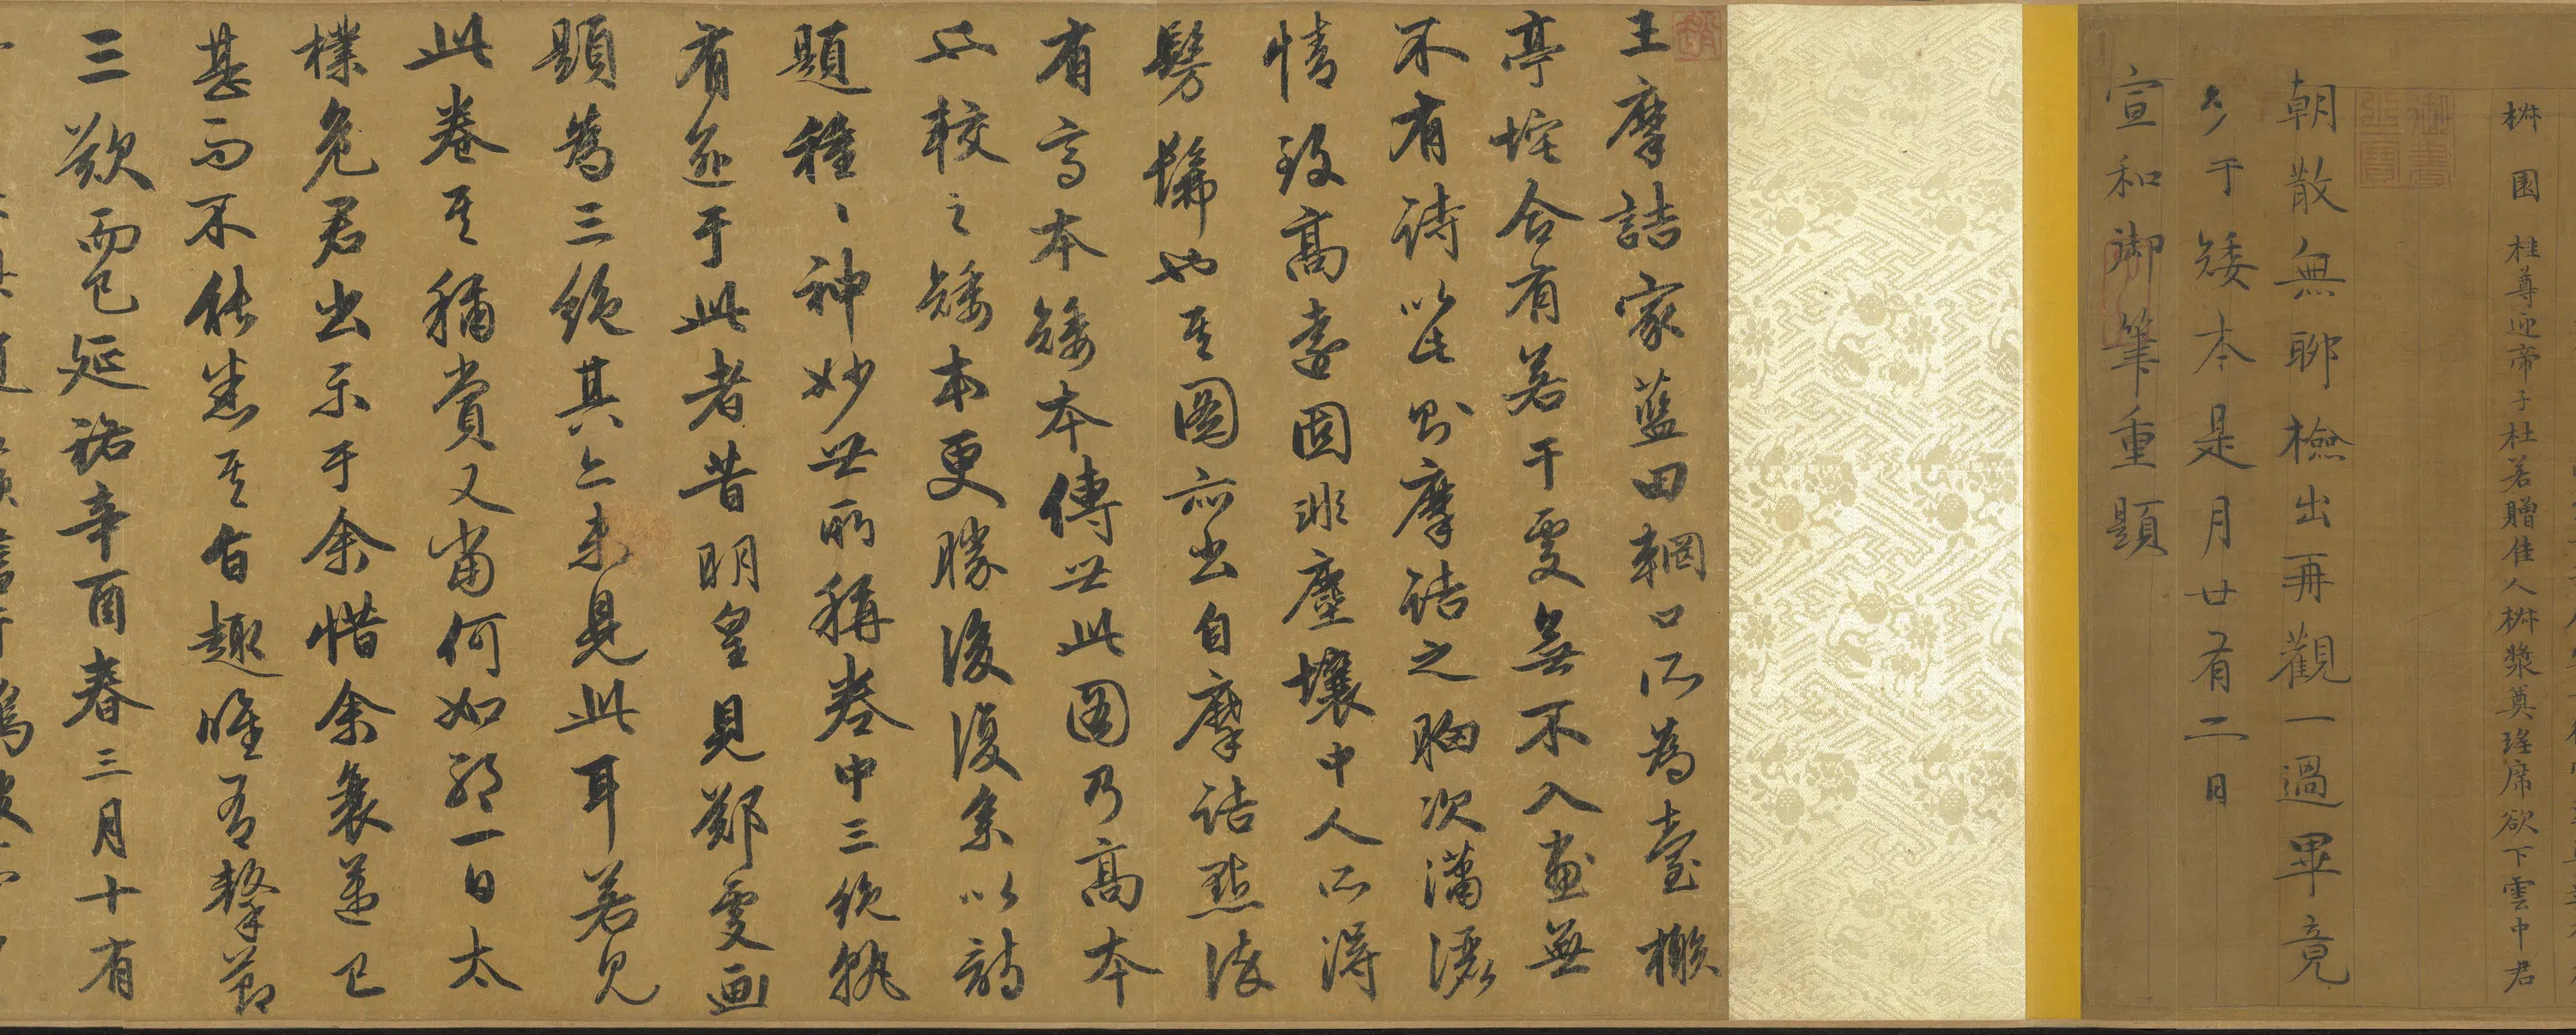 椒園 桂尊迎帝子杜若贈佳人椒漿奠瑤席欲下雲中君
朝散無聊檢出再觀一過畢竟
多于矮本是月廿有二日
宣和御筆重題
王摩詰家藍田輞口所為臺榭
亭垞合有若干處無不入畫無
不有詩以此則摩詰之胸次瀟灑
情致高遠固非塵壤中人所得
髣髴也其圖亦出自摩詰點染
有高本矮本傳世此圖乃高本
也較之矮本更勝後復系以詩
題種種神妙世所稱卷中三絕孰
有逾于此者昔明皇見鄭虔画
題為三絕其亦未見此耳若見
此卷其稱賞又當何如耶一日太
樸危君出示于余惜余衰邁已
甚而不能悉其旨趣唯有擊節
三歎而已延祐辛酉春三月十有